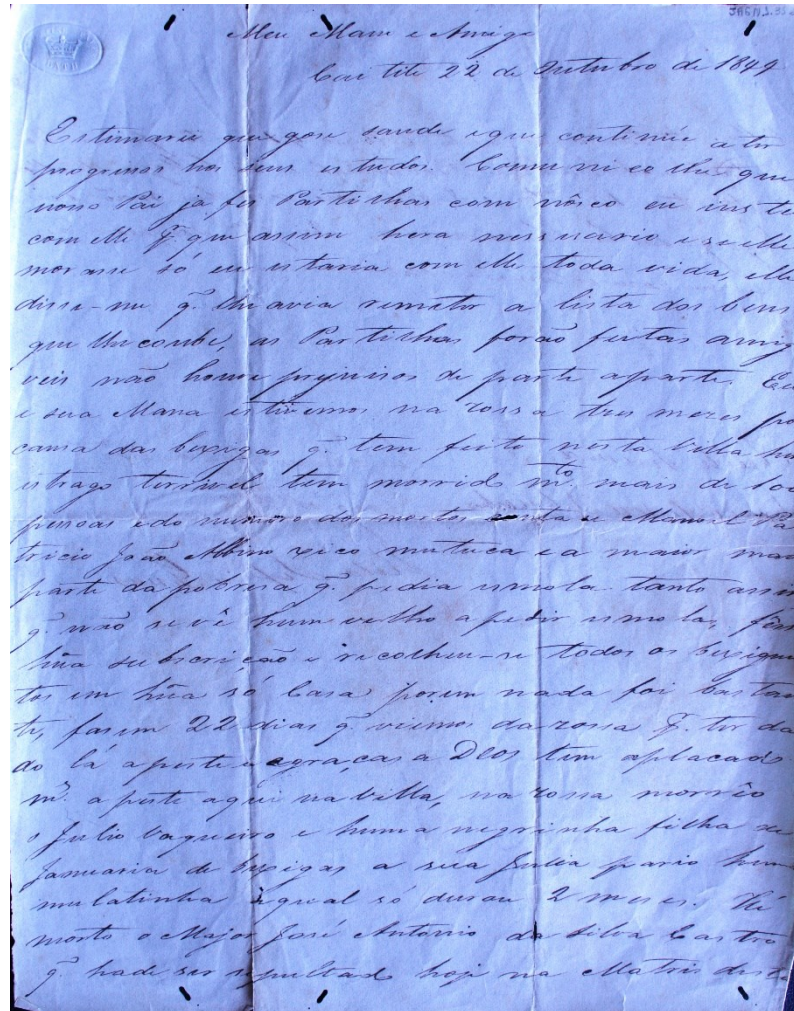 JAGN.1.
BATH
Meu Mano e Amigo
Caetite 22 de Outubro de 1849
Estimarei que gose saude e que continúe a ter
progressos nos seus estudos. Communico lhe que
nosso Pai ja fes Partilhas com nôsco eu inste
com elle pr. que assim hera nessecario e se elle
morasse só eu estaria com elle toda vida, elle
disse-me q. lhe avia remeter a lista dos bens
que lhe coube, as Partilhas forão feitas amig
veis não houve prejuisos de parte aparte. Eu
e sua Mana estivemos na rossa tres mezes po
causa das bexigas q. tem feito nesta Villa hu
estrago terrivel tem morrido mto. mais de 100
pessoas e do numero dos mortos conta se Manoel Pa
tricio João Albino xico mutuca e a maior
parte da pobresa q. pedia esmola tanto assi
q. não se vê hum velho a pedir esmolas, fês
hũa subscrição e recolheu-se todos os bexigue
tos em hũa só Casa porem nada foi basta
te, fasem 22 dias q. viemos da rossa pr. ter da
do lá a peste e graças a Deos tem aplacado
mto. a peste aqui na Villa, na rossa morrêo
o Julio Vaqueiro e huma negrinha filha de
Januaria de bexigas a sua Julia pario hum
mulatinha a qual só durou 2 meses. Hé
morto o Major José Antonio da Silva Castro
q. hade ser sepultado hoje na Matris dest